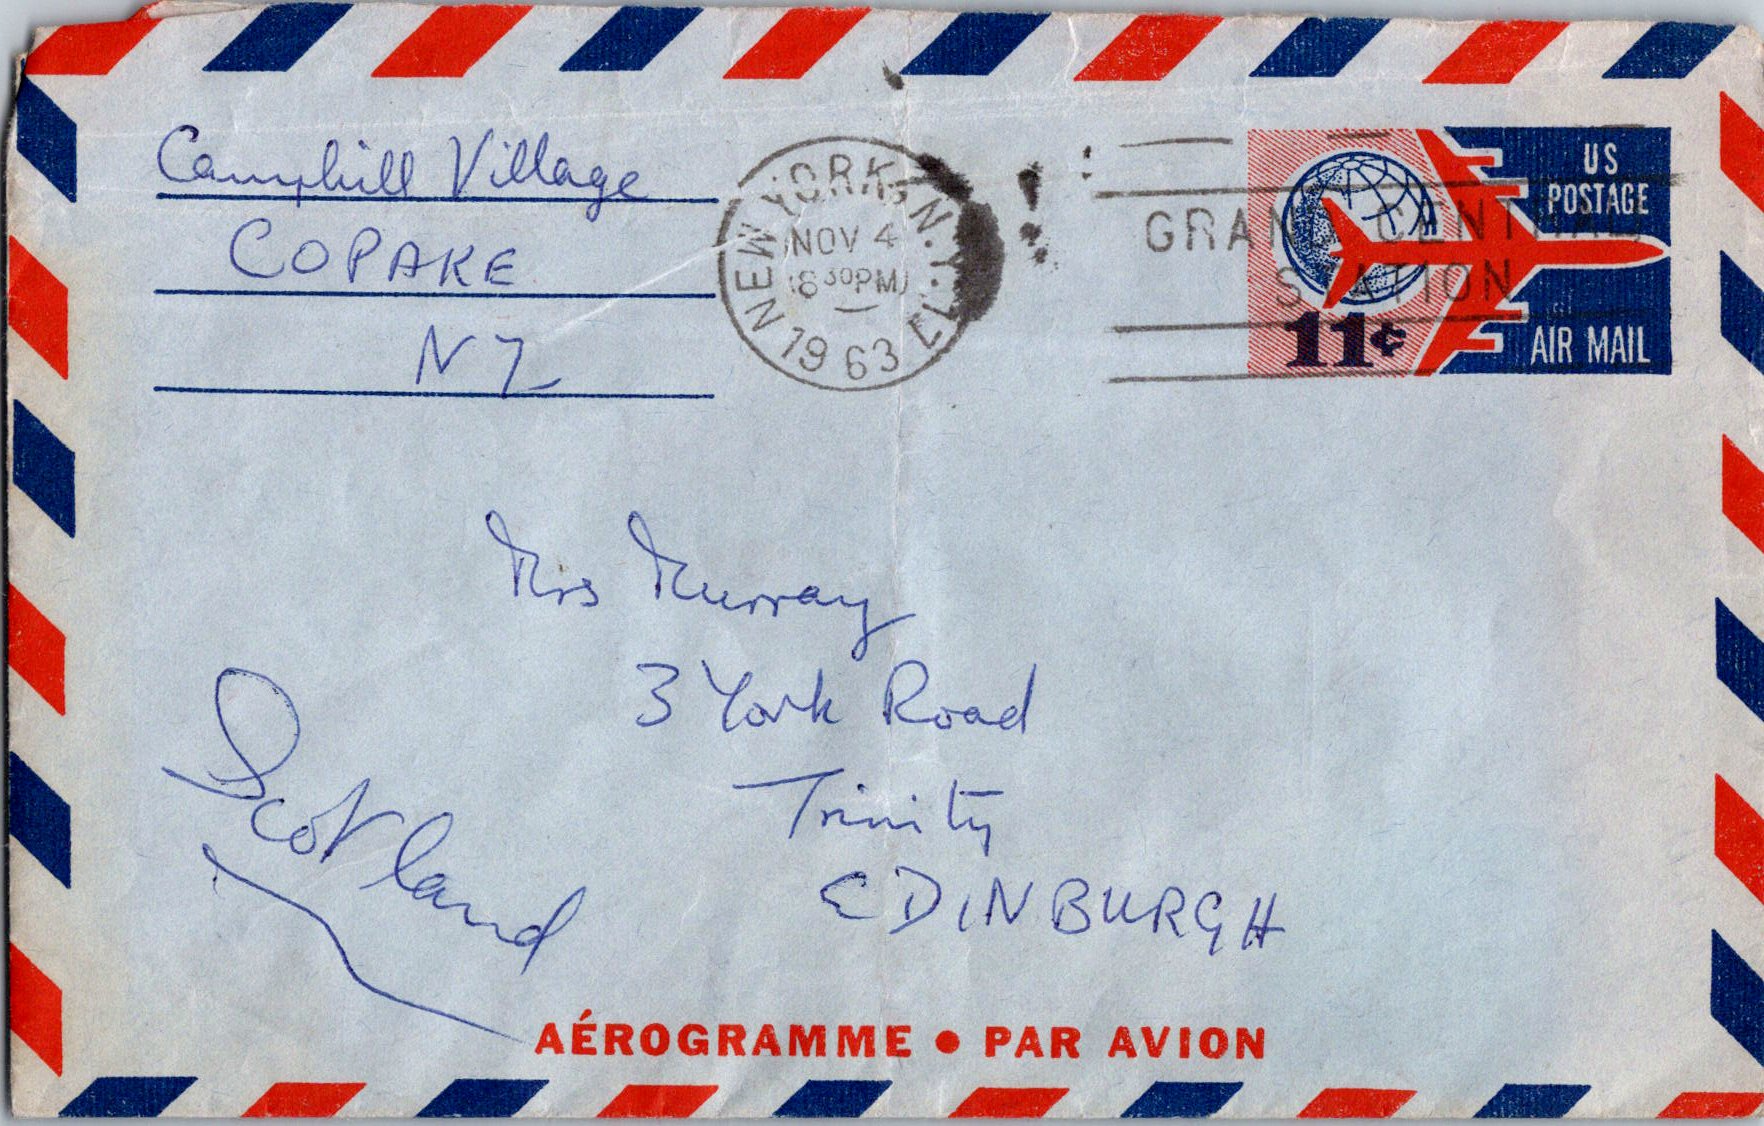 Camphill Village
COPAKE
NY
NEW YORK, N.Y.
NOV 4
830PM
1963
GRAND CENTRAL
STATION
US
POSTAGE
11¢
AIR MAIL
Mrs Murray
3 York Road
Trinity
EDINBURGH
Scotland
AÉROGRAMME • PAR AVION